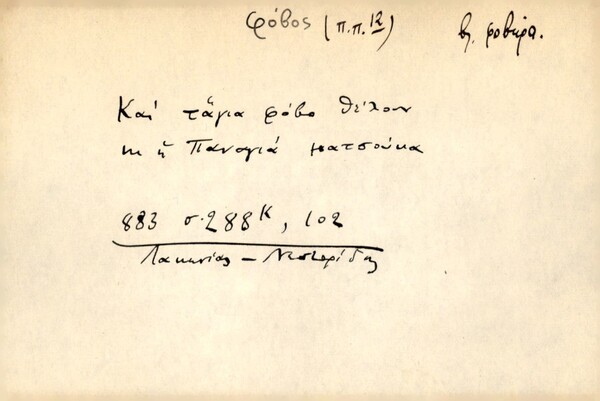 φόβος (π.π. 12) βλ. φοβέρα.
Καί τἅγια φόβο θέλουν
κι ἡ Παναγιά ματσούκα
883 σ. 288 Κ, 102
Λακωνίας - Νεστορίδης